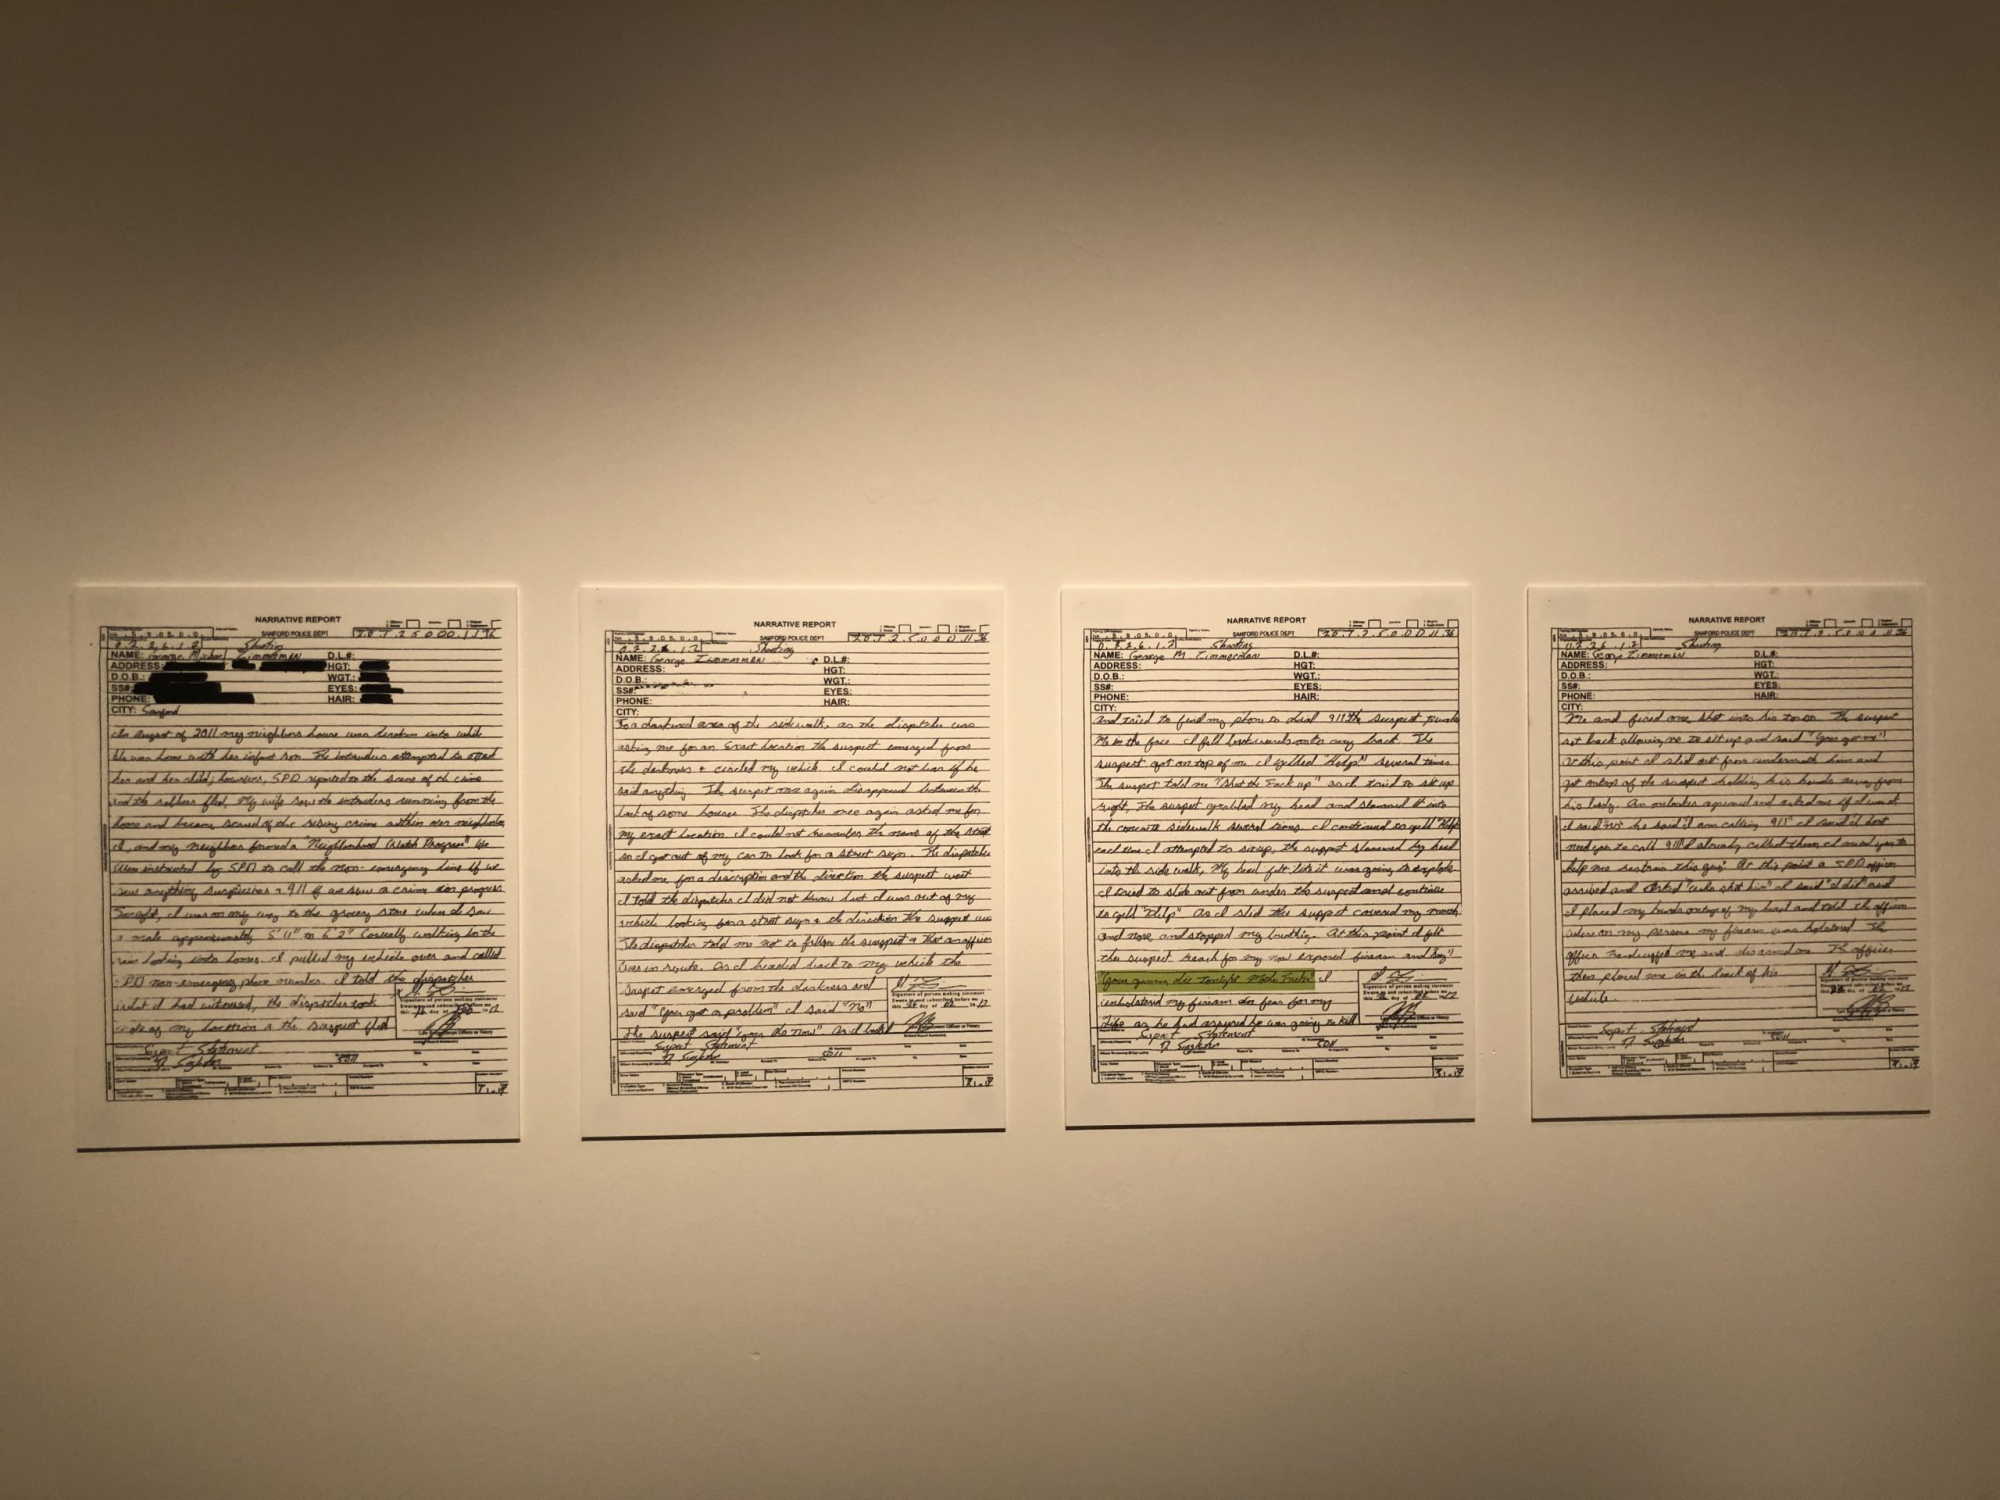 NARRATIVE REPORT
SANFORD POLICE DEPT
0.2.2.6.1.2 Shooting
NAME: George Michael Zimmerman D.L#:
ADDRESS: HGT:
D.O.B.: WGT.:
SS#: EYES:
PHONE: HAIR:
CITY: Sanford
In August of 2011 my neighbors house was broken into while
she was home with her infant son. The intruders attempted to attack
her and her child; however, SPD reported to the scene of the crime
and the robbers fled. My wife saw the intruders running from the
home and became scared of the rising crime within our neighborhood
I, and my neighbors formed a "Neighborhood Watch Program" We
were instructed by SPD to call the non-emergency line if we
saw anything suspicious & 911 if we saw a crime in progress
Tonight, I was on my way to the grocery store when I saw
a male approximately 5'11" to 6'2" Casually walking in the
rain looking into homes. I pulled my vehicle over and called
SPD non-emergency phone number. I told the dispatcher
what I had witnessed, the dispatcher took
note of my location & the suspect fled
Signature of person making statement
NARRATIVE REPORT
SANFORD POLICE DEPT
0.2.2.6.1.2 Shooting
NAME: George Zimmerman D.L#:
ADDRESS: HGT:
D.O.B.: WGT.:
SS#: EYES:
PHONE: HAIR:
CITY:
To a darkened area of the sidewalk, as the dispatcher was
asking me for an Exact location the suspect emerged from
the darkness & circled my vehicle. I could not hear if he
said anything. The suspect once again disappeared between the
back of some houses. The dispatcher once again asked me for
my exact location I could not remember the name of the street
so I got out of my car to look for a street sign. The dispatcher
asked me for a description and the direction the suspect went
I told the dispatcher I did not know but I was out of my
vehicle looking for a street sign & the direction the suspect went
The dispatcher told me not to follow the suspect & that an officer
was in route. As I headed back to my vehicle the
suspect emerged from the darkness and
said "you got a problem" I said "No"
the suspect said "you do now" As I looked
Signature of person making statement
NARRATIVE REPORT
SANFORD POLICE DEPT
0.2.2.6.1.2 Shooting
NAME: George M. Zimmerman D.L#:
ADDRESS: HGT:
D.O.B.: WGT.:
SS#: EYES:
PHONE: HAIR:
CITY:
And tried to find my phone to dial 911 the suspect punched
me in the face. I fell backwards onto my back. The
suspect got on top of me I yelled "Help" several times
The suspect told me "Shut the Fuck up" as I tried to sit up
right, The suspect grabbed my head and slammed it into
the concrete sidewalk several times. I continued to yell "Help"
each time I attempted to sit up, the suspect slammed my head
into the side walk, My head felt like it was going to explode
I tried to slide out from under the suspect and continue
to yell "Help". As I slid the suspect covered my mouth
and nose and stopped my breathing. At this point I felt
the suspect reach for my now exposed firearm and say
I
unholstered my firearm in fear for my
life as he had assured he was going to kill
Signature of person making statement
NARRATIVE REPORT
SANFORD POLICE DEPT
0.2.2.6.1.2 Shooting
NAME: George Zimmerman D.L#:
ADDRESS: HGT:
D.O.B.: WGT.:
SS#: EYES:
PHONE: HAIR:
CITY:
Me and fired one shot into his torso. The suspect
sat back allowing me to sit up and said "you got me"
At this point I slid out from underneath him and
got ontop of the suspect holding his hands away from
his body. An onlooker appeared and asked me if I was ok
I said "no" he said "I am calling 911" I said I dont
need you to call 911 I already called them I need you to
help me restrain this guy. At this point a SPD officer
arrived and asked "who shot him" I said "I did" and
I placed my hands ontop of my head and told the officer
where on my persons my firearm was holstered. The
officer handcuffed me and disarmed me. The officer
then placed me in the back of his
vehicle.
Signature of person making statement